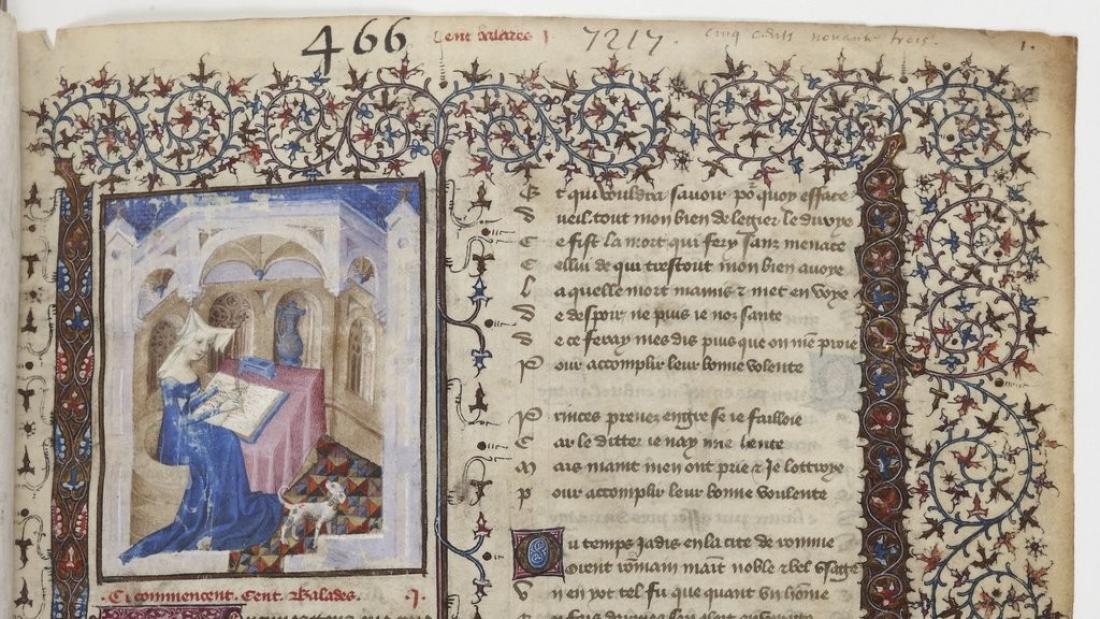 466 Cent balades I 7217. cinq cents nonante trois. 1.
Ci commencent Cent Balades. I.
Et qui vouldra savoir por quoy efface
Dueil tout mon bien de legier le diroye
Ce fist la mort qui fery sanz menace
Cellui de qui trestout mon bien avoye
Laquelle mort ma mis & met en voye
De despoir ne puis ie noz sante
De ce feray mes dis puis que on me proie
Pour accomplir leur bonne volente
Princes prenez en gre se ie failloie
Car le ditter ie nay mie hente
Mais maint men ont prie & ie lottroye
Pour accomplir leur bonne voulente
Ou temps iadis en la cite de romme
Orent rommain maint noble & bel usage
Un en yot tel fu que quant un homme